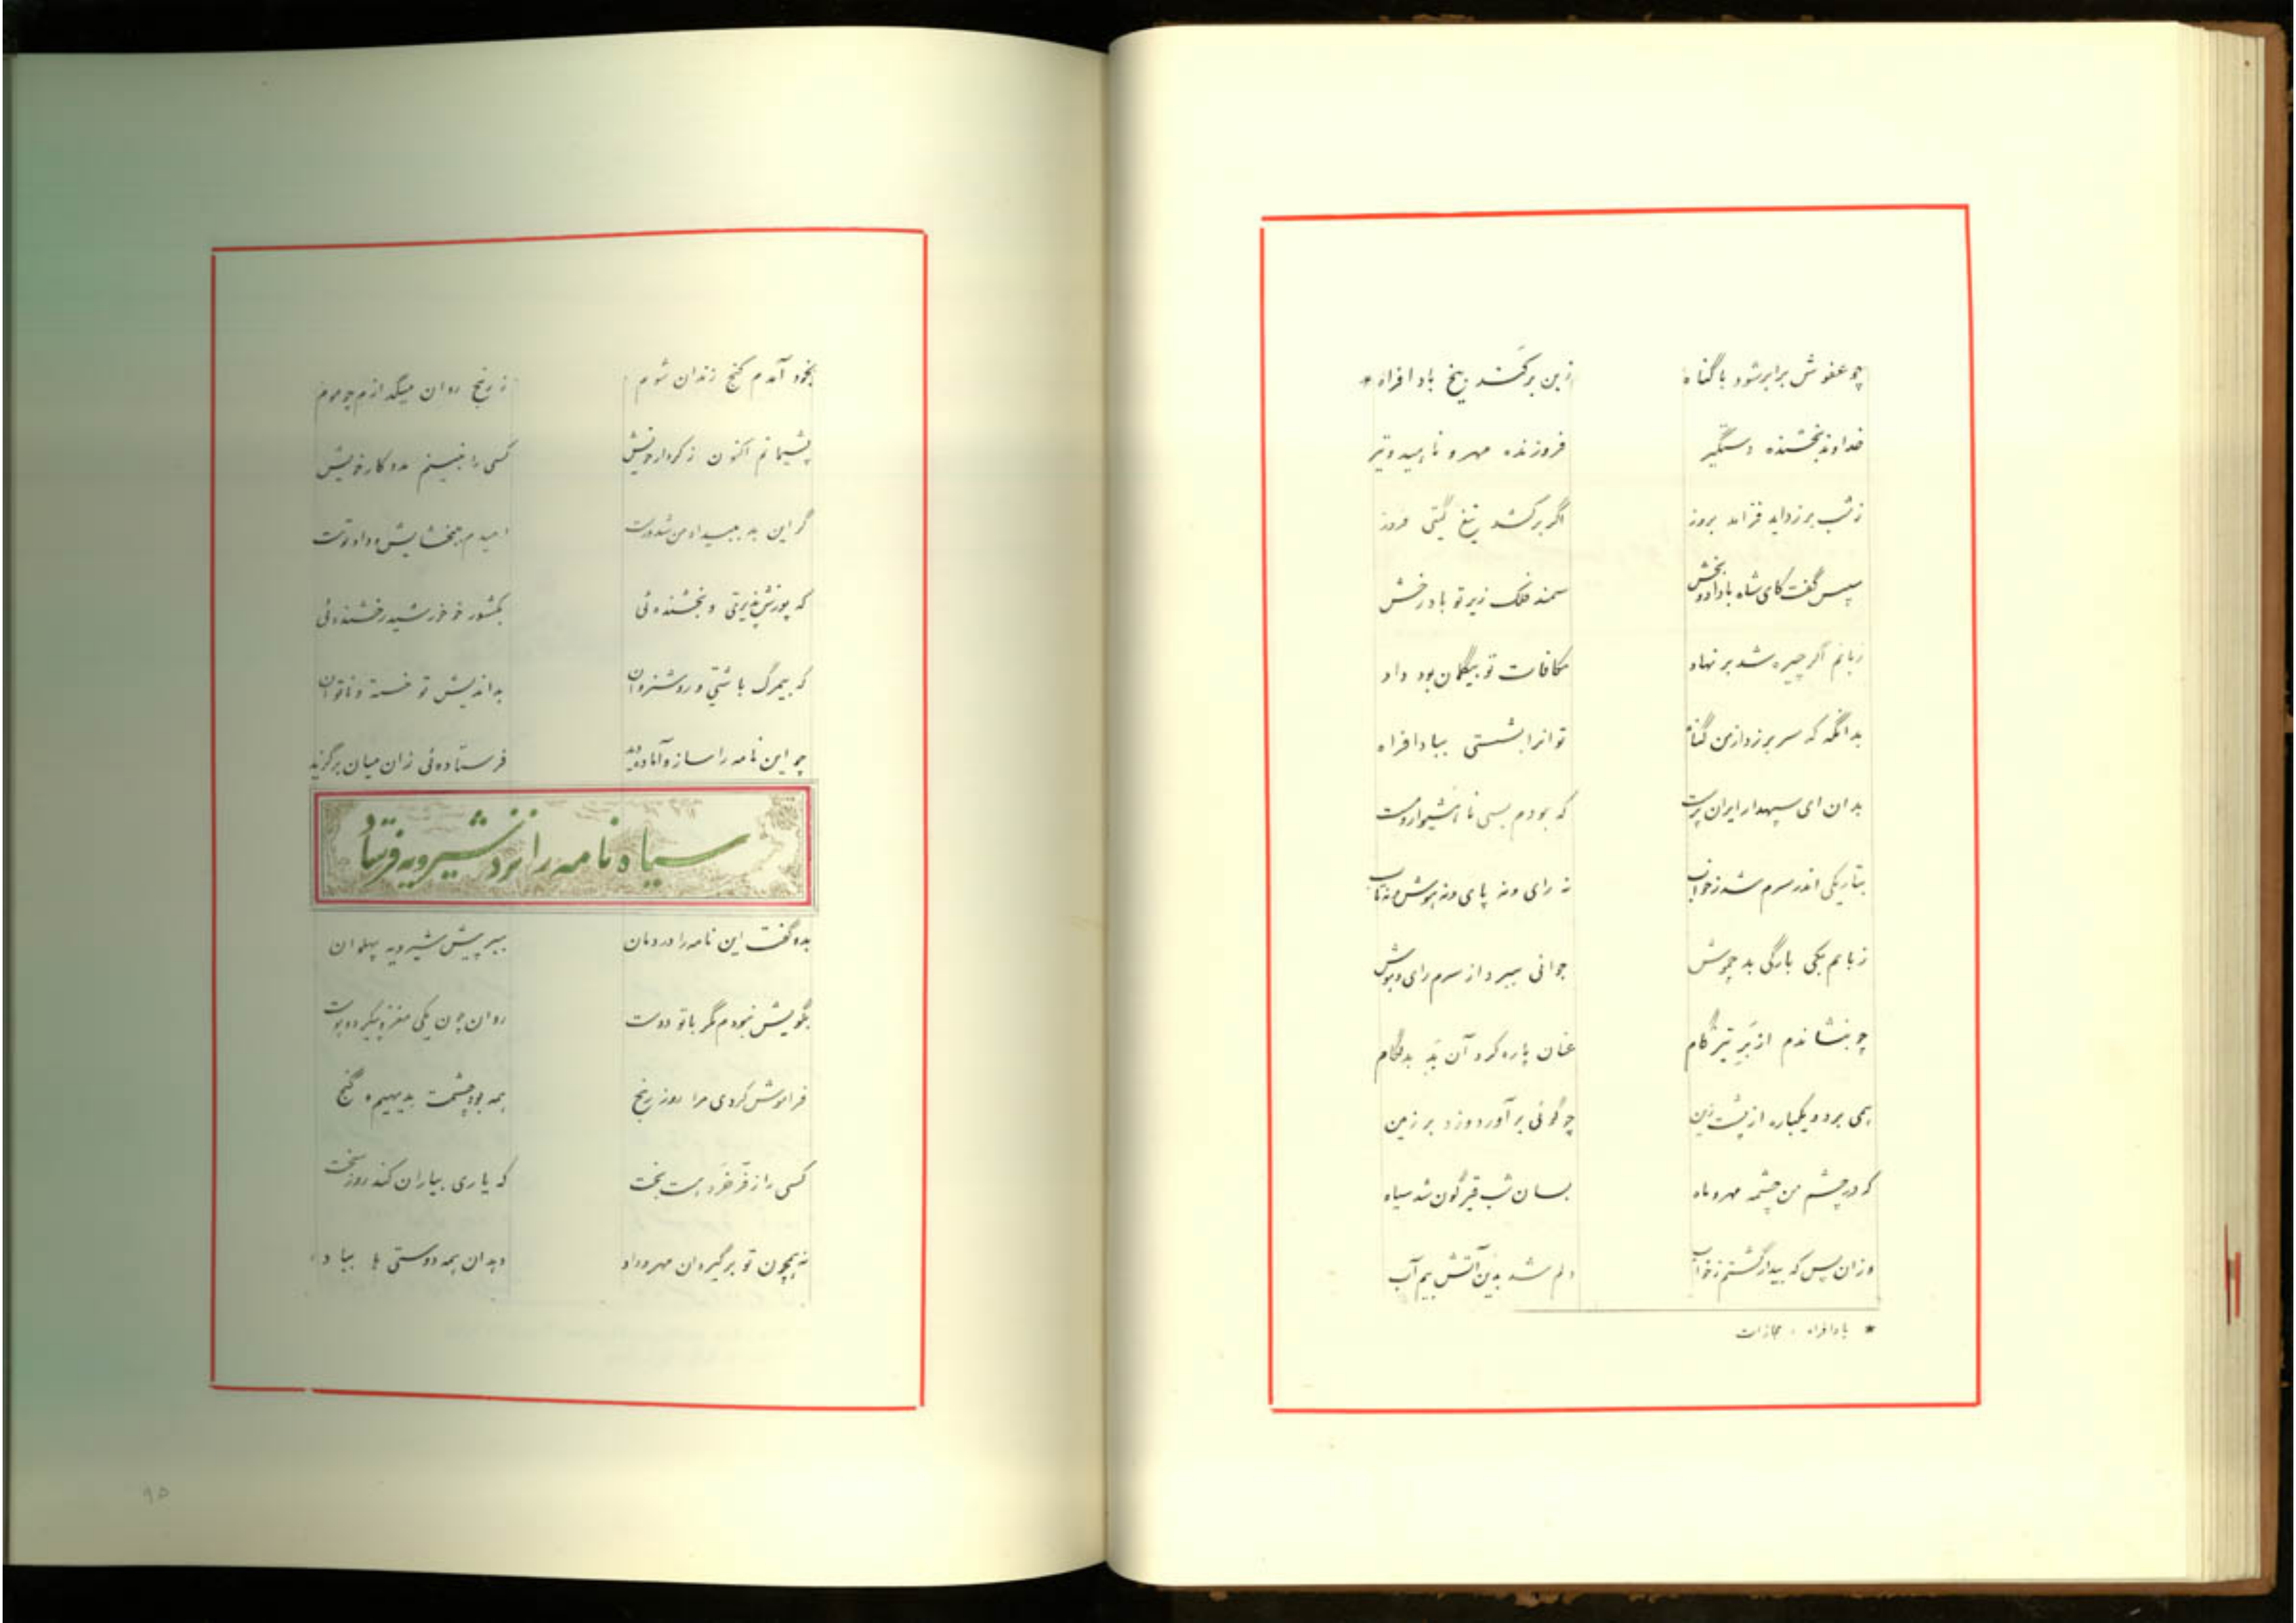 چو عفوش برابر شود با گناه زبن برکند بیخ بادافراه *
خداوند بخشنده دستگیر فروزنده مهر و ناهید و تیر
ز شب بر زداید فزاند بروز اگر برکشد تیغ گیتی فروز
سپس گفت کای شاه با داد و بخش سمند فلک زیر تو باد رخش
زبانم اگر چیره شد بر نهاد مکافات تو بیگمان بود داد
بدانگه که سر بر زد از من گناه تو آنرا بشستی ببادافراه
بدان ای سپهدار ایران پرست که بودم بسی ناهشیوار و مست
بتاریکی اندر سرم شد ز خواب نه رای و نه پای و نه هوش و نه تاب
ز بامم یکی بارگی بد چموش جوانی ببرد از سرم رای و هوش
چو بنشاندم از بر تیزگام عنان پاره کرد آن بد بدلگام
همی برد و یکباره از پشت زین چو گوئی بر آورد و زد بر زمین
که در چشم من چشمه مهر و ماه بسان شب قیرگون شد سیاه
وزان پس که بیدار گشتم ز خواب دلم شد بدین آتش بیم آب
* بادافراه ، مجازات
بخود آمدم کنج زندان شوم ز رنج روان میگدازم چو موم
پشیمانم اکنون ز کردار خویش کسی را نبینم مددکار خویش
گر این بد ببیداد من شد درست امیدم ببخشایش و داد توست
که پوزش پذیرتی و بخشنده ئی بکشور خور خورشید رخشنده ئی
که بیمرگ باشی و روشنروان بداندیش تو خسته و ناتوان
چو این نامه را ساز و آماده دید فرستاده ئی زان میان برگزید
سیاه نامه را نزد شیرویه فرستاد
بدو گفت این نامه را در دمان ببر پیش شیرویه پهلوان
بگویش نبودم مگر با تو دوست روان چون یکی مغز و پیکر دو پوست
فراموش کردی مرا روز رنج همه بود چشمت بدیهیم و گنج
کسی را ز فر خرد هست بخت که یاری بیاران کند روز سخت
نه همچون تو برگیرد آن مهر و داد دهد آن همه دوستی ها بباد
۹۵